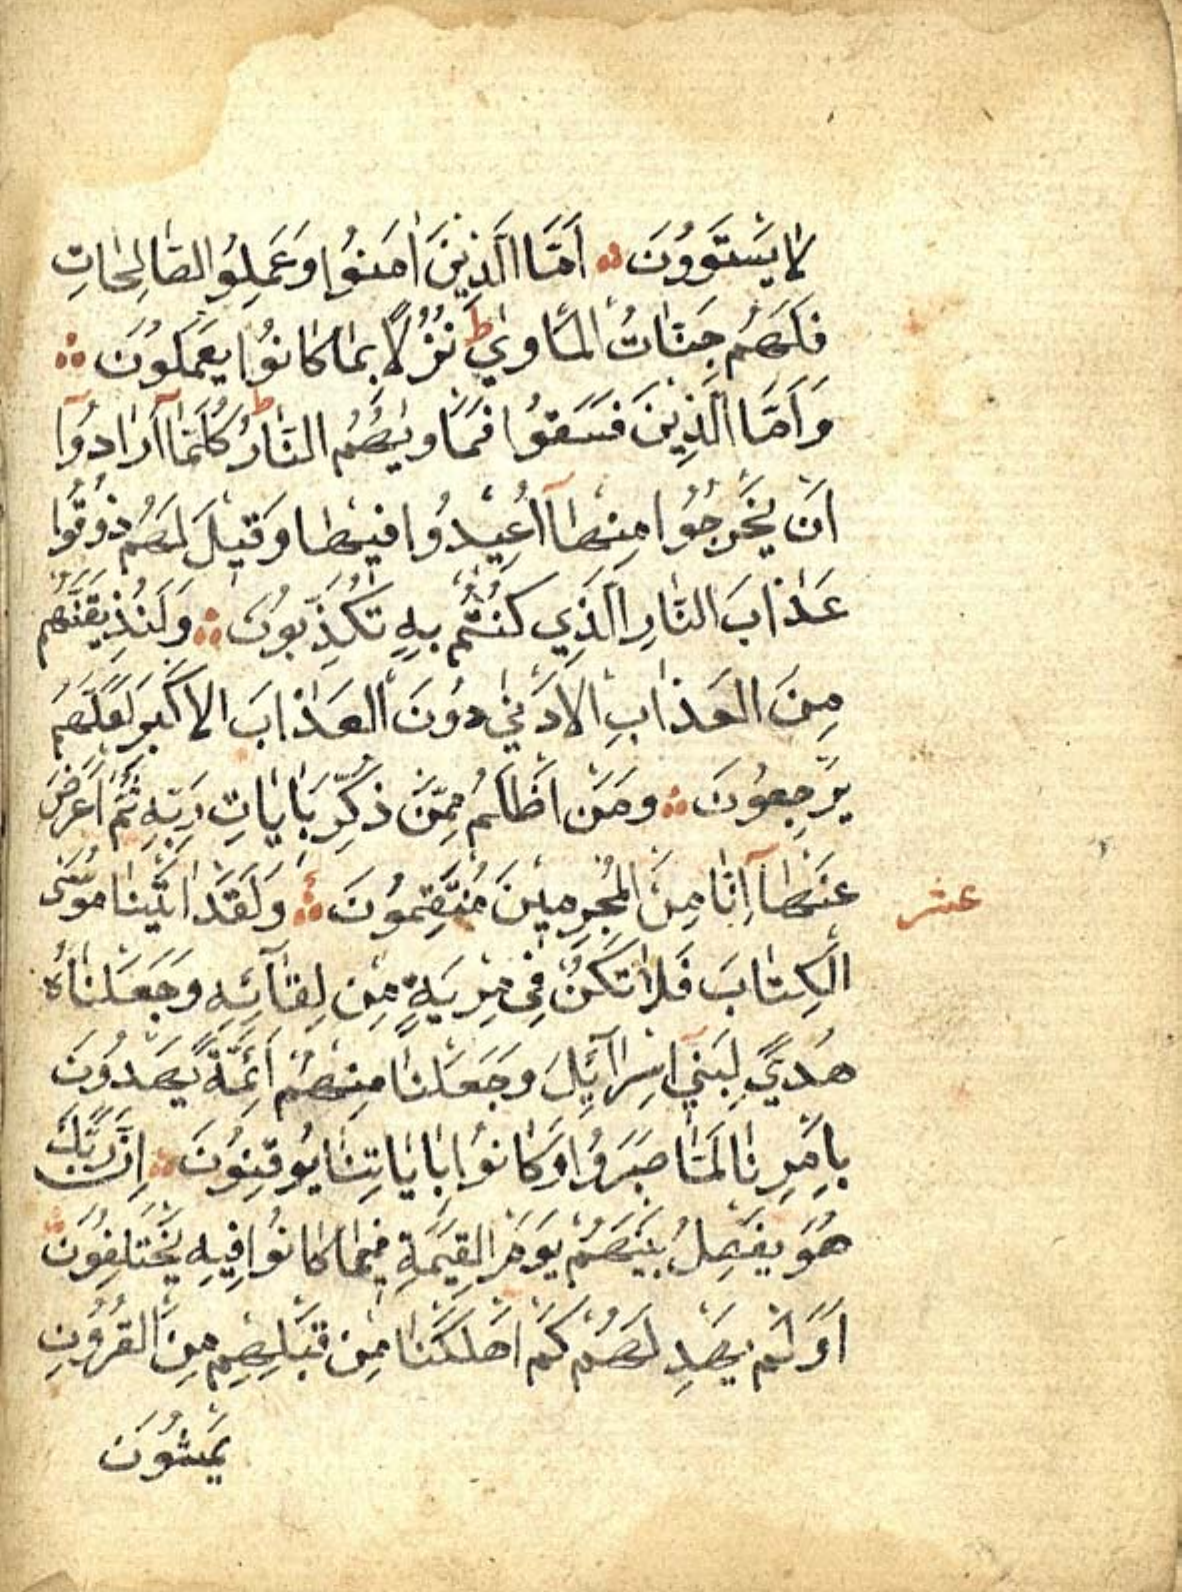 لَا يَسْتَوُونَ ۝ اَمَّا الَّذِينَ اٰمَنُوا وَعَمِلُوا الصَّالِحَاتِ
فَلَهُمْ جَنَّاتُ الْمَأْوٰي ط نُزُلًا بِمَا كَانُوا يَعْمَلُونَ ۝
وَاَمَّا الَّذِينَ فَسَقُوا فَمَأْوٰيهُمُ النَّارُ ط كُلَّمَآ اَرَادُوٓا
اَنْ يَخْرُجُوا مِنْهَآ اُعِيدُوا فِيهَا وَقِيلَ لَهُمْ ذُوقُوا
عَذَابَ النَّارِ الَّذِي كُنْتُمْ بِهِ تُكَذِّبُونَ ۝ وَلَنُذِيقَنَّهُمْ
مِنَ الْعَذَابِ الْاَدْنٰي دُونَ الْعَذَابِ الْاَكْبَرِ لَعَلَّهُمْ
يَرْجِعُونَ ۝ وَمَنْ اَظْلَمُ مِمَّنْ ذُكِّرَ بِاٰيَاتِ رَبِّهِ ثُمَّ اَعْرَضَ
عَنْهَآ اِنَّا مِنَ الْمُجْرِمِينَ مُنْتَقِمُونَ ۝ وَلَقَدْ اٰتَيْنَا مُوسَى
عشر
الْكِتَابَ فَلَا تَكُنْ فِي مِرْيَةٍ مِنْ لِقَآئِهِ وَجَعَلْنَاهُ
هُدًي لِبَنِيٓ اِسْرَآئِلَ وَجَعَلْنَا مِنْهُمْ اَئِمَّةً يَهْدُونَ
بِاَمْرِنَا لَمَّا صَبَرُوا وَكَانُوا بِاٰيَاتِنَا يُوقِنُونَ ۝ اِنَّ رَبَّكَ
هُوَ يَفْصِلُ بَيْنَهُمْ يَوْمَ الْقِيٰمَةِ فِيمَا كَانُوا فِيهِ يَخْتَلِفُونَ ۝
اَوَلَمْ يَهْدِ لَهُمْ كَمْ اَهْلَكْنَا مِنْ قَبْلِهِمْ مِنَ الْقُرُونِ
يَمْشُونَ